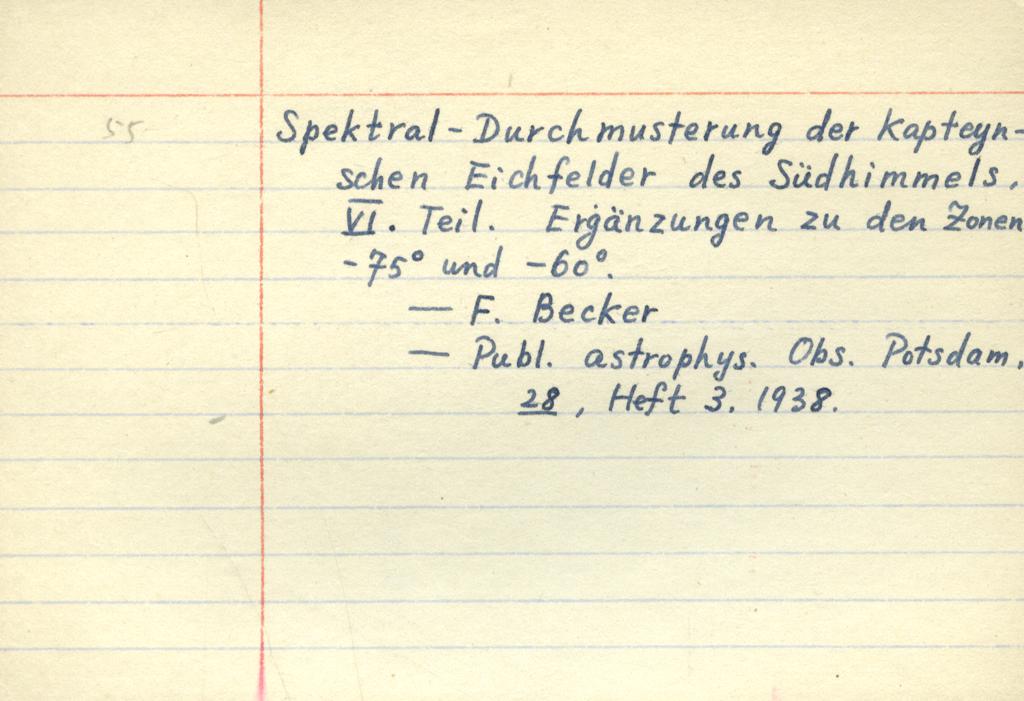 55
Spektral-Durchmusterung der Kapteyn-
schen Eichfelder des Südhimmels,
VI. Teil. Ergänzungen zu den Zonen
-75° und -60°.
— F. Becker
— Publ. astrophys. Obs. Potsdam,
28, Heft 3. 1938.